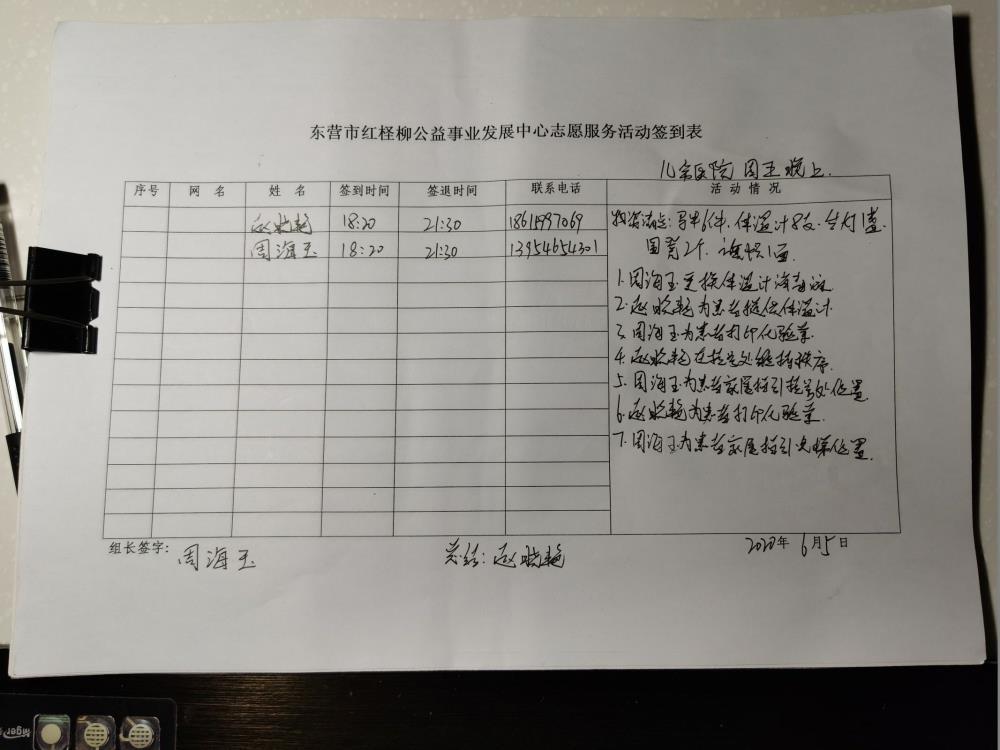 东营市红柽柳公益事业发展中心志愿服务活动签到表
儿童医院 周五晚上.
序号 网名 姓名 签到时间 签退时间 联系电话 活动情况
赵晓艳 18:20 21:30 18615997069
周海玉 18:20 21:30 13954654301
物资清点:马甲6件.体温计8支.台灯1盏.
1.周海玉更换体温计消毒液
2.赵晓艳为患者提供体温计.
3.周海玉为患者打印化验单.
4.赵晓艳在挂号处维持秩序.
5.周海玉为患者家属指引挂号处位置.
6.赵晓艳为患者打印化验单.
7.周海玉为患者家属指引电梯位置.
组长签字: 周海玉 总结:赵晓艳 2020年6月5日